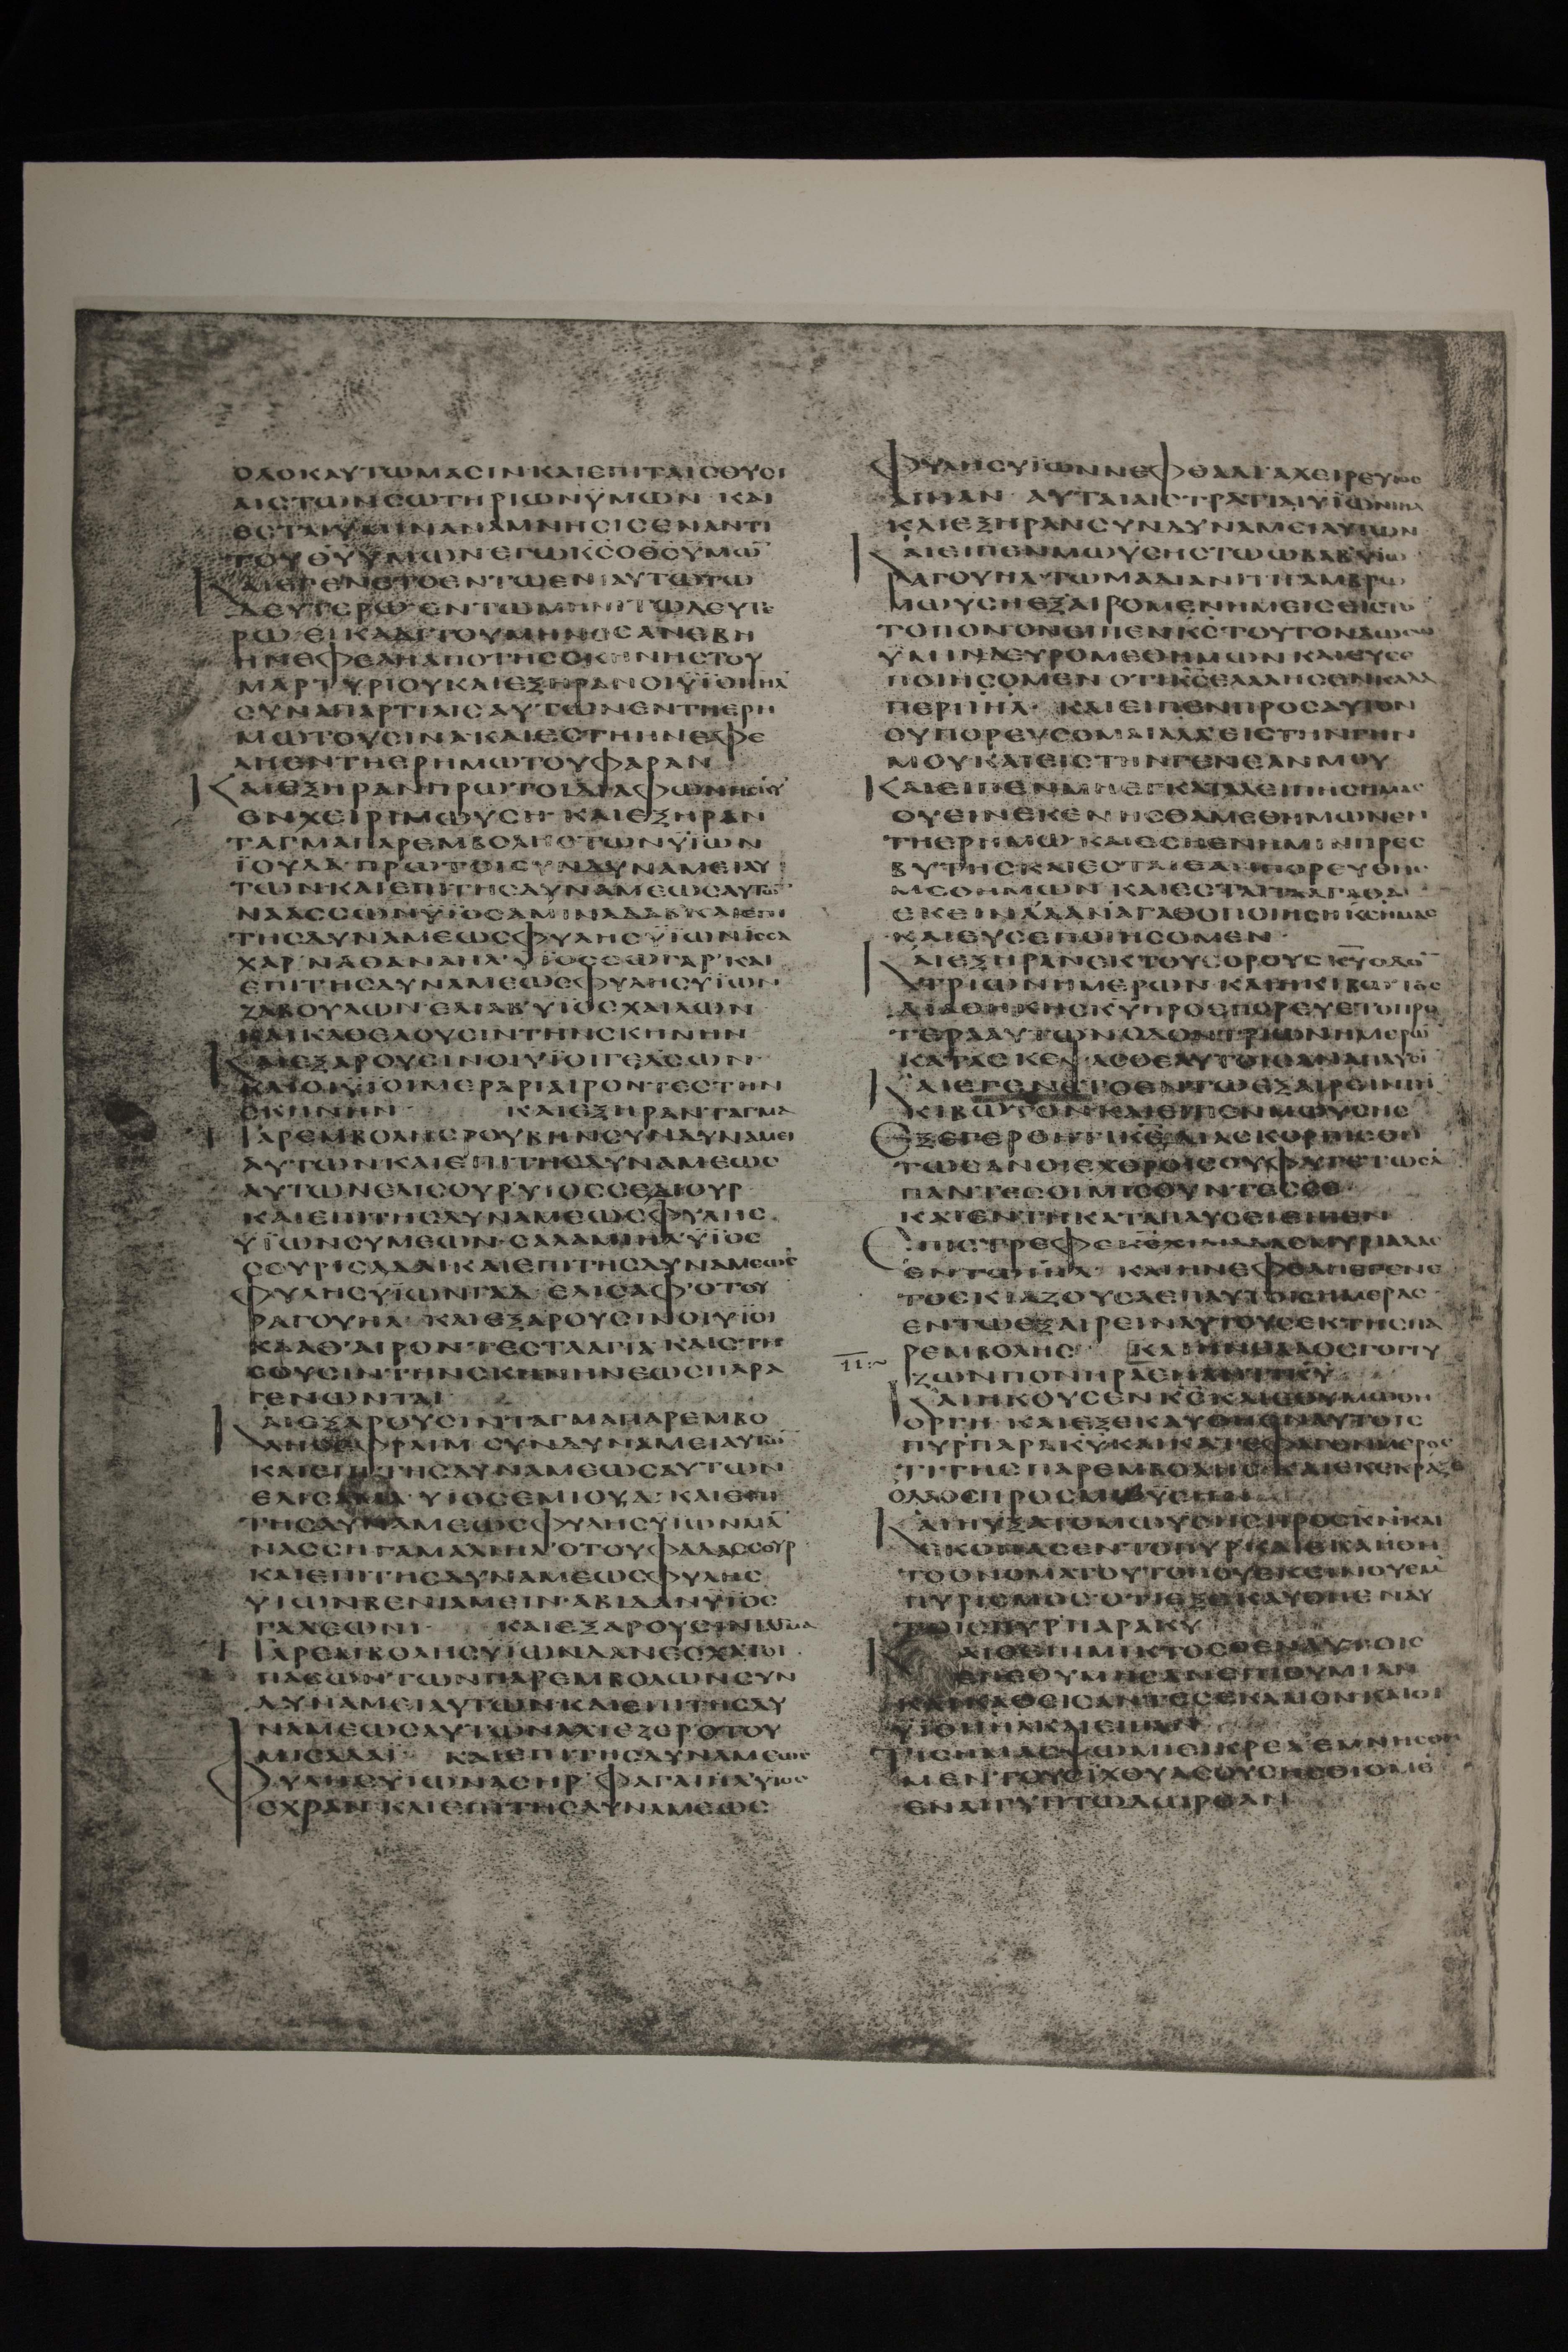 ΟΛΟΚΑΥΤΩΜΑСΙΝΚΑΙΕΠΙΤΑΙСΘΥСΙ
ΑΙСΤΩΝСΩΤΗΡΙΩΝΫΜΩΝ ΚΑΙ
ΕСΤΑΙΫΜΙΝΑΝΑΜΝΗСΙСΕΝΑΝΤΙ
ΤΟΥΘΥΫΜΩΝΕΓΩΚСΟΘСΥΜΩ̅
ΚΑΙΕΓΕΝΕΤΟΕΝΤΩΕΝΙΑΥΤΩΤΩ
ΔΕΥΤΕΡΩ ΕΝΤΩΜΗΝΙΤΩΔΕΥΤΕ
ΡΩ ΕΙΚΑΔΙΤΟΥΜΗΝΟСΑΝΕΒΗ
ΗΝΕΦΕΛΗΑΠΟΤΗССΚΗΝΗСΤΟΥ
ΜΑΡΤΥΡΙΟΥΚΑΙΕΞΗΡΑΝΟΙΫΪΟΙΙΗΛ
СΥΝΑΠΑΡΤΙΑΙСΑΥΤΩΝΕΝΤΗΕΡΗ
ΜΩΤΟΥСΙΝΑ ΚΑΙΕСΤΗΗΝΕΦΕ
ΛΗΕΝΤΗΕΡΗΜΩΤΟΥΦΑΡΑΝ
ΚΑΙΕΞΗΡΑΝΠΡΩΤΟΙΔΙΑΦΩΝΗСΚΥ
ΕΝΧΕΙΡΙΜΩΥСΗ ΚΑΙΕΞΗΡΑΝ
ΤΑΓΜΑΠΑΡΕΜΒΟΛΗСΤΩΝΫΪΩΝ
ΪΟΥΔΑ ΠΡΩΤΟΙСΥΝΔΥΝΑΜΕΙΑΥ
ΤΩΝΚΑΙΕΠΙΤΗСΔΥΝΑΜΕΩСΑΥΤΩ̅
ΝΑΑССΩΝΫΪΟСΑΜΙΝΑΔΑΒ ΚΑΙΕΠΙ
ΤΗСΔΥΝΑΜΕΩСΦΥΛΗСΫΪΩΝΙССΑ
ΧΑΡ ΝΑΘΑΝΑΗΛ ΫΪΟССΩΓΑΡ ΚΑΙ
ΕΠΙΤΗСΔΥΝΑΜΕΩСΦΥΛΗСΥΪΩΝ
ΖΑΒΟΥΛΩΝ ΕΛΙΑΒ ΥΪΟСΧΑΙΛΩΝ
ΚΑΙΚΑΘΕΛΟΥСΙΝΤΗΝСΚΗΝΗΝ
ΚΑΙΕΞΑΡΟΥСΙΝΟΙΥΪΟΙΓΕΔСΩΝ
ΚΑΙΟΙΫΪΟΙΜΕΡΑΡΙΑΙΡΟΝΤΕСΤΗΝ
СΚΗΝΗΝ ΚΑΙΕΞΗΡΑΝΤΑΓΜΑ
ΠΑΡΕΜΒΟΛΗСΡΟΥΒΗΝСΥΝΔΥΝΑΜΕΙ
ΑΥΤΩΝΚΑΙΕΠΙΤΗСΔΥΝΑΜΕΩС
ΑΥΤΩΝΕΛΙСΟΥΡ ΥΙΟССΕΔΙΟΥΡ
ΚΑΙΕΠΙΤΗСΔΥΝΑΜΕΩСΦΥΛΗС
ΥΪΩΝСΥΜΕΩΝ СΑΛΑΜΙΗΛ ΫΪΟС
СΟΥΡΙСΑΔΑΙ ΚΑΙΕΠΙΤΗСΔΥΝΑΜΕΩС
ΦΥΛΗСΥΪΩΝΓΑΔ ΕΛΙСΑΦ ΟΤΟΥ
ΡΑΓΟΥΗΛ ΚΑΙΕΞΑΡΟΥСΙΝΟΙΥΪΟΙ
ΚΑΑΘ ΑΙΡΟΝΤΕСΤΑΑΓΙΑ ΚΑΙСΤΗ
СΟΥСΙΝΤΗΝСΚΗΝΗΝΕΩСΠΑΡΑ
ΓΕΝΩΝΤΑΙ
ΚΑΙΕΞΑΡΟΥСΙΝΤΑΓΜΑΠΑΡΕΜΒΟ
ΛΗСΕΦΡΑΙΜ СΥΝΔΥΝΑΜΕΙΑΥΤΩ̅
ΚΑΙΕΠΙΤΗСΔΥΝΑΜΕΩСΑΥΤΩΝ
ΕΛΙСΑΜΑ ΥΙΟСΕΜΙΟΥΔ ΚΑΙΕΠΙ
ΤΗСΔΥΝΑΜΕΩСΦΥΛΗСΥΙΩΝΜΑ̅
ΝΑССΗ ΓΑΜΑΛΙΗΛ ΟΤΟΥΦΑΔΑССΟΥΡ
ΚΑΙΕΠΙΤΗСΔΥΝΑΜΕΩСΦΥΛΗС
ΥΙΩΝΒΕΝΙΑΜΕΙΝ ΑΒΙΔΑΝΫΪΟС
ΓΑΔΕΩΝΙ ΚΑΙΕΞΑΡΟΥСΙΝΤΑΓΜΑ
ΠΑΡΕΜΒΟΛΗСΥΙΩΝΔΑΝΕСΧΑΤΟΙ
ΠΑСΩΝΤΩΝΠΑΡΕΜΒΟΛΩΝСΥΝ
ΔΥΝΑΜΕΙΑΥΤΩΝ ΚΑΙΕΠΙΤΗСΔΥ
ΝΑΜΕΩСΑΥΤΩΝΑΧΙΕΖΕΡ ΟΤΟΥ
ΜΙСΑΔΑΙ ΚΑΙΕΠΙΤΗСΔΥΝΑΜΕΩС
ΦΥΛΗСΥΪΩΝΑСΗΡ ΦΑΓΑΙΗΛ ΥΪΟС
ΕΧΡΑΝ ΚΑΙΕΠΙΤΗСΔΥΝΑΜΕΩС
ΦΥΛΗСΥΪΩΝΝΕΦΘΑΛΙ ΑΧΕΙΡΕΥΙΟС
ΑΙΝΑΝ ΑΥΤΑΙΑΙСΤΡΑΤΙΑΙΥΪΩΝΙΗΛ
ΚΑΙΕΞΗΡΑΝСΥΝΔΥΝΑΜΕΙΑΥΤΩΝ
ΚΑΙΕΙΠΕΝΜΩΥСΗСΤΩΩΒΑΒΥΪΩ
ΡΑΓΟΥΗΛ ΤΩΜΑΔΙΑΝΙΤΗΓΑΜΒΡΩ
ΜΩΥСΗ ΕΞΑΙΡΟΜΕΝΗΜΕΙСΕΙСΤΟ̅
ΤΟΠΟΝΟΝΕΙΠΕΝΚС ΤΟΥΤΟΝΔΩСΩ
ΫΜΙΝ ΔΕΥΡΟΜΕΘΗΜΩΝ ΚΑΙΕΥСΕ
ΠΟΙΗСΟΜΕΝ ΟΤΙΚСΕΛΑΛΗСΕΝΚΑΛΑ
ΠΕΡΙΙΗΛ ΚΑΙΕΙΠΕΝΠΡΟСΑΥΤΟΝ
ΟΥΠΟΡΕΥСΟΜΑΙΑΛΛΕΙСΤΗΝΓΗΝ
ΜΟΥΚΑΙΕΙСΤΗΝΓΕΝΕΑΝΜΟΥ
ΚΑΙΕΙΠΕΝΜΗΕΓΚΑΤΑΛΕΙΠΗСΗΜΑС
ΟΥΕΙΝΕΚΕΝΗСΘΑΜΕΘΗΜΩΝΕΝ
ΤΗΕΡΗΜΩ ΚΑΙΕСΗΕΝΗΜΙΝΠΡΕС
ΒΥΤΗС ΚΑΙΕСΤΑΙΕΑΝΠΟΡΕΥΘΗС
ΜΕΘΗΜΩΝ ΚΑΙΕСΤΑΙΤΑΑΓΑΘΑ
ΕΚΕΙΝΑ ΑΑΝΑΓΑΘΟΠΟΙΗСΗΚСΗΜΑС
ΚΑΙΕΥСΕΠΟΙΗСΟΜΕΝ
ΚΑΙΕΞΗΡΑΝΕΚΤΟΥΟΡΟΥСΚΥΟΔΟ̅
ΤΡΙΩΝΗΜΕΡΩΝ ΚΑΙΗΚΙΒΩΤΟС
ΔΙΑΘΗΚΗСΚΥΠΡΟΕΠΟΡΕΥΕΤΟΠΡΟ
ΤΕΡΑΑΥΤΩΝΟΔΟΝΤΡΙΩΝΗΜΕΡΩ̅
ΚΑΤΑСΚΕΨΑСΘΕΑΥΤΟΙСΑΝΑΠΑΥСΙ̅
ΚΑΙΕΓΕΝΕΤΟΕΝΤΩΕΞΑΙΡΕΙΝΤΗ̅
ΚΙΒΩΤΟΝΚΑΙΕΙΠΕΝΜΩΥСΗС
ΕΞΕΓΕΡΘΗΤΙΚΕ ΔΙΑСΚΟΡΠΙСΘΗ
ΤΩСΑΝΟΙΕΧΘΡΟΙСΟΥΦΥΓΕΤΩСΑ̅
ΠΑΝΤΕСΟΙΜΙСΟΥΝΤΕССΕ
ΚΑΙΕΝΤΗΚΑΤΑΠΑΥСΕΙΕΙΠΕΝ
ΕΠΙСΤΡΕΦΕΚΕΧΙΛΙΑΔΑСΜΥΡΙΑΔΑС
ΕΝΤΩΙΗΛ ΚΑΙΗΝΕΦΕΛΗΕΓΕΝΕ
ΤΟСΚΙΑΖΟΥСΑΕΠΑΥΤΟΙСΗΜΕΡΑС
ΕΝΤΩΕΞΑΙΡΕΙΝΑΥΤΟΥСΕΚΤΗСΠΑ
ΡΕΜΒΟΛΗС ΚΑΙΗΝΟΛΑΟСΓΟΓΓΥ
11:~
ΖΩΝΠΟΝΗΡΑΕΝΑΝΤΙΚΥ
ΚΑΙΗΚΟΥСΕΝΚСΚΑΙΕΘΥΜΩΘΗ
ΟΡΓΗ ΚΑΙΕΞΕΚΑΥΘΗΕΝΑΥΤΟΙС
ΠΥΡΠΑΡΑΚΥΚΑΙΚΑΤΕΦΑΓΕΝΜΕΡΟС
ΤΙΤΗСΠΑΡΕΜΒΟΛΗС ΚΑΙΕΚΕΚΡΑΞΕ
ΟΛΑΟСΠΡΟСΜΩΥСΗΝ
ΚΑΙΗΥΞΑΤΟΜΩΥСΗСΠΡΟСΚΝΚΑΙ
ΕΚΟΠΑСΕΝΤΟΠΥΡ ΚΑΙΕΚΛΗΘΗ
ΤΟΟΝΟΜΑΤΟΥΤΟΠΟΥΕΚΕΙΝΟΥΕΜ
ΠΥΡΙСΜΟС ΟΤΙΕΞΕΚΑΥΘΗΕΝΑΥ
ΤΟΙСΠΥΡΠΑΡΑΚΥ
ΚΑΙΟΕΠΙΜΙΚΤΟСΟΕΝΑΥΤΟΙС
ΕΠΕΘΥΜΗСΑΝΕΠΙΘΥΜΙΑΝ
ΚΑΙΚΑΘΕΙСΑΝΤΕСΕΚΛΑΙΟΝΚΑΙΟΙ
ΥΪΟΙΙΗΛΚΑΙΕΙΠΑΝ
ΤΙСΗΜΑСΨΩΜΙΕΙΚΡΕΑ ΕΜΝΗСΘΗ
ΜΕΝΤΟΥСΙΧΘΥΑСΟΥСΗСΘΙΟΜΕ̅
ΕΝΑΙΓΥΠΤΩΔΩΡΕΑΝ